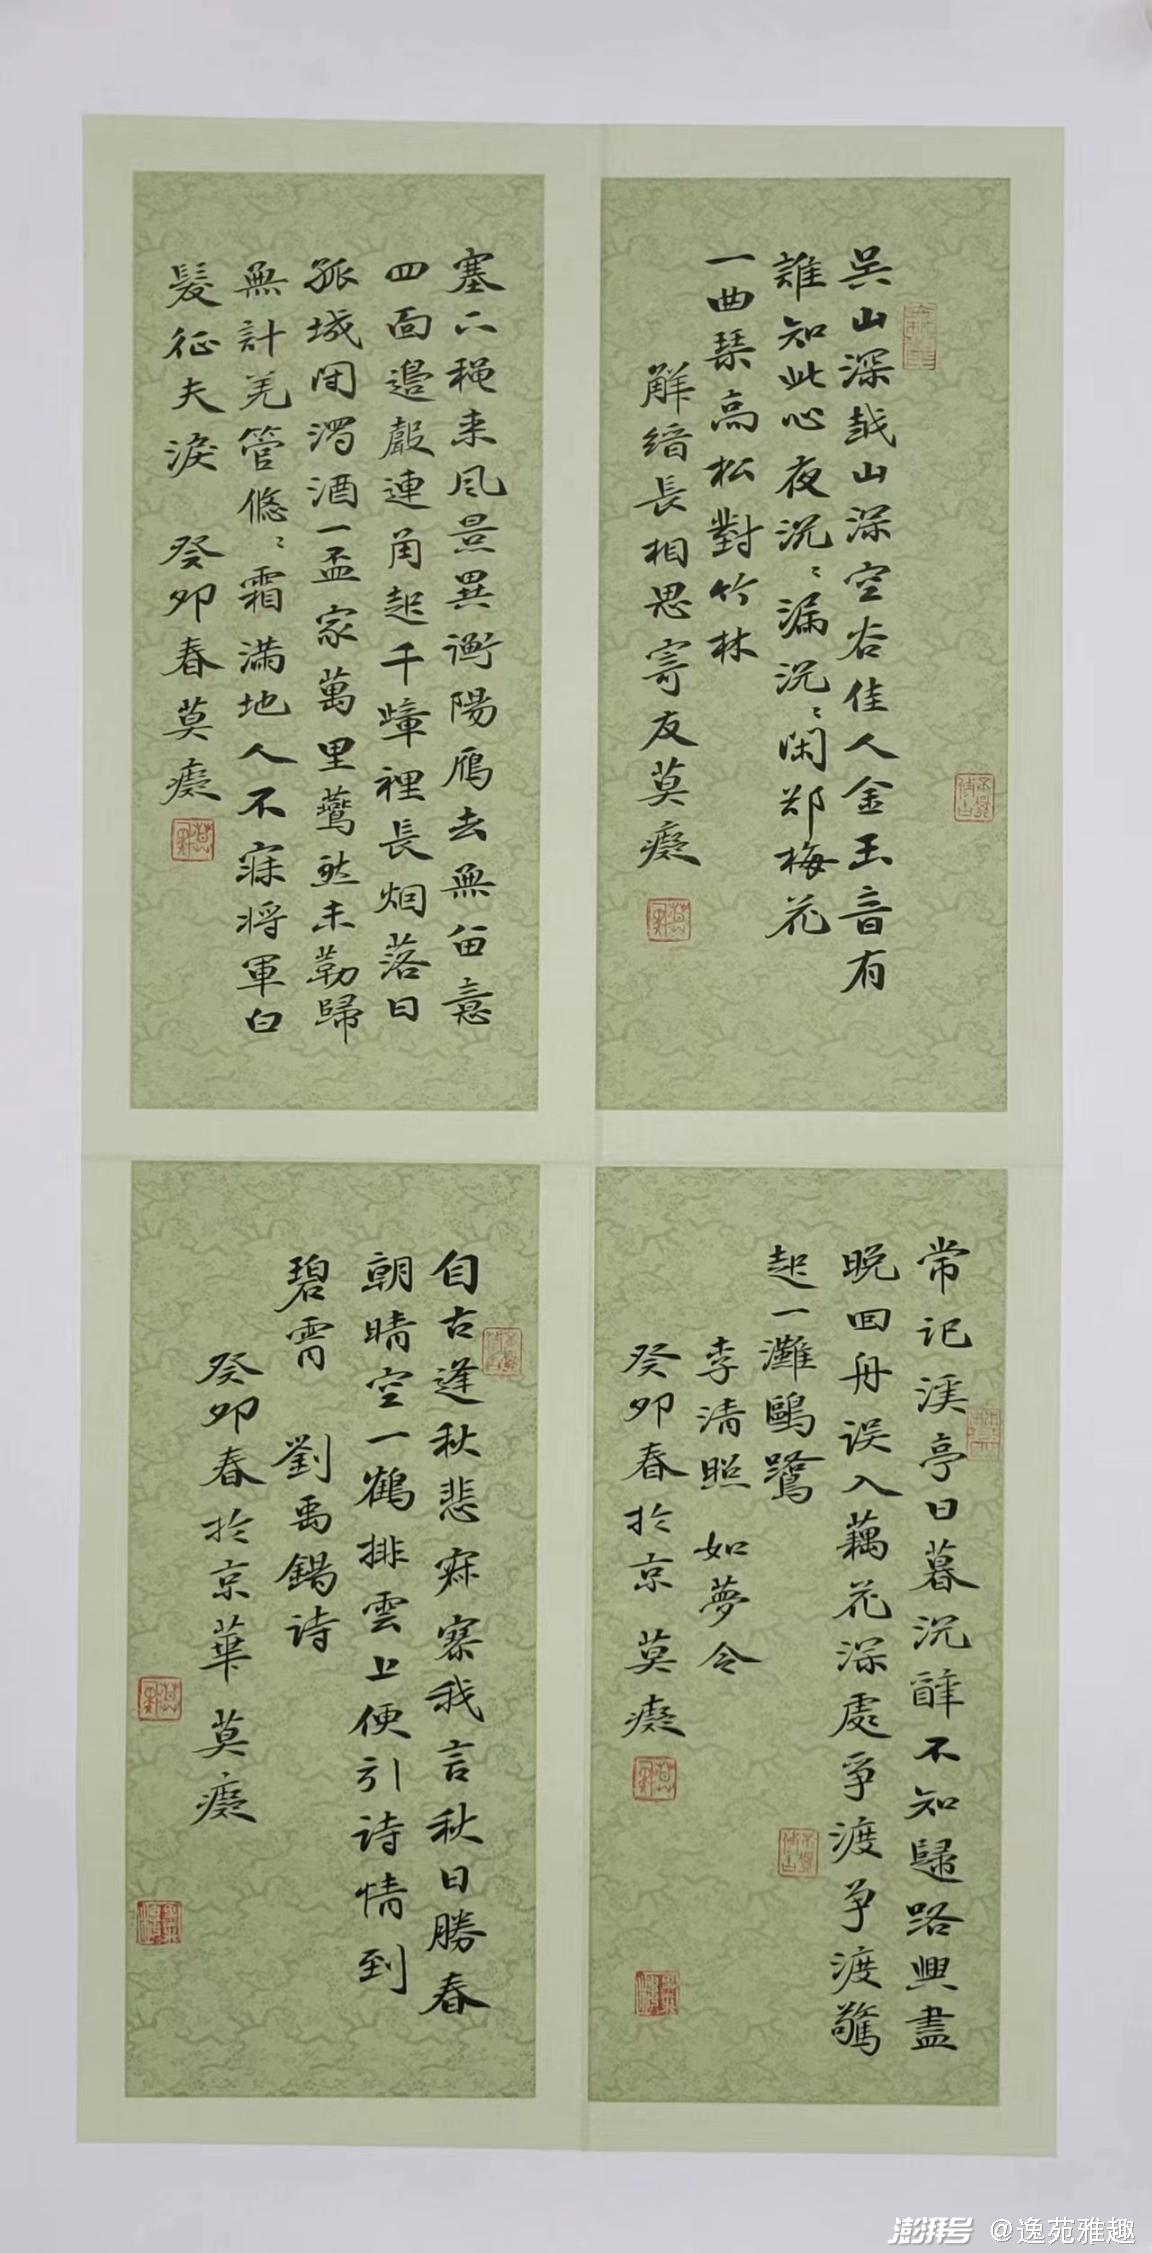 吳山深越山深空谷佳人金玉音有
誰知此心夜沉〻漏沉〻閑却梅花
一曲琴高松對竹林
解縉長相思寄友莫癡
塞下秋来風景異衡陽鴈去無留意
四面邉聲連角起千嶂裡長烟落日
孤城閉濁酒一盃家萬里鷰然未勒歸
無計羌管悠〻霜满地人不寐将軍白
髪征夫淚 癸卯春莫癡
常记溪亭日暮沉醉不知歸路興盡
晚回舟误入藕花深處爭渡争渡驚
起一灘鷗鷺
李清照 如夢令
癸卯春於京 莫癡
自古逢秋悲寂寥我言秋日勝春
朝晴空一鶴排雲上便引诗情到
碧霄 劉禹錫诗
癸卯春於京華 莫癡
澎湃号 @逸苑雅趣